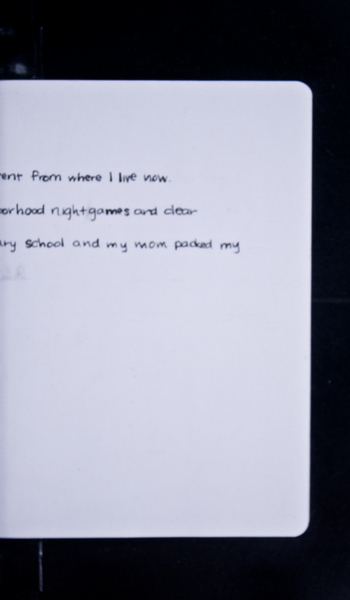 ent from where I live now.
orhood nightgames and clear
ary school and my mom packed my